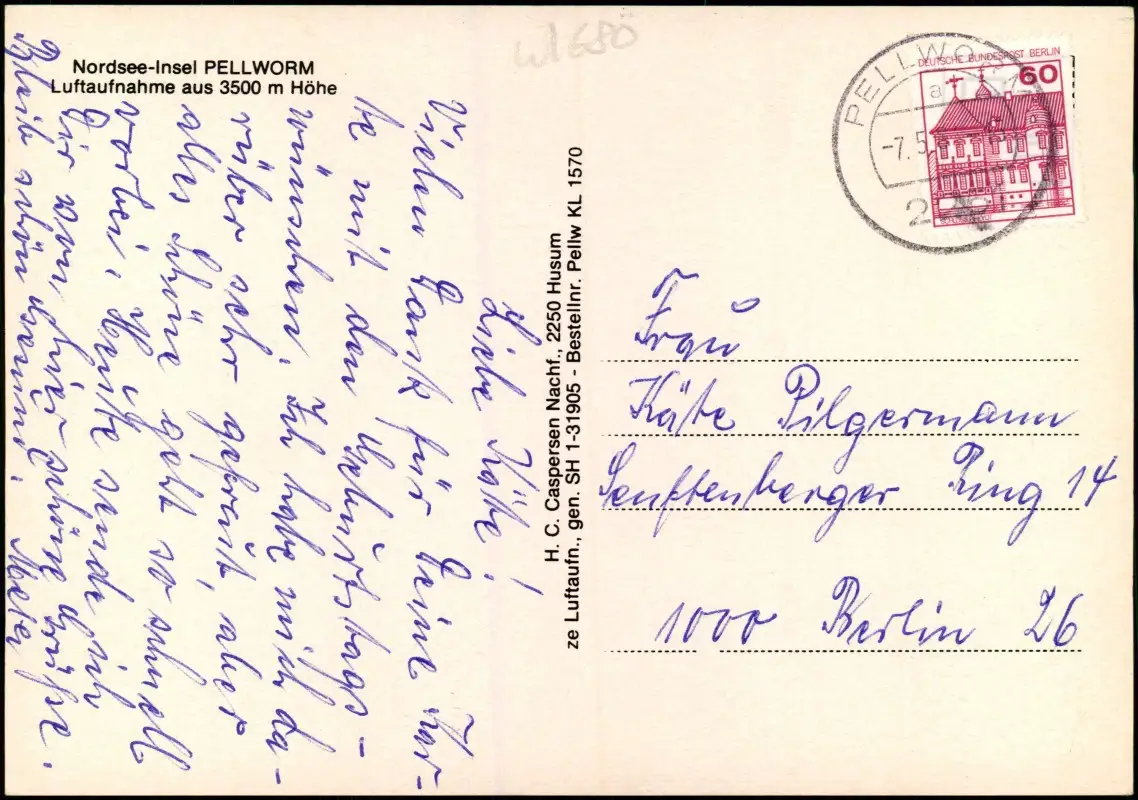 Nordsee-Insel PELLWORM
Luftaufnahme aus 3500 m Höhe
Liebe Käte!
Vielen Dank für Deine Kar-
te mit den Geburtstags-
wünschen. Ich habe mich da-
rüber sehr gefreut, aber
alles schöne geht so schnell
vorbei. Heute sende ich
Dir von hier schöne Grüße.
Bleib schön gesund. Meta
H. C. Caspersen Nachf., 2250 Husum
ze Luftaufn., gen. SH 1-31905 - Bestellnr. Pellw KL 1570
DEUTSCHE BUNDESPOST BERLIN
60
PELLWO
a
-7.5
Frau
Käte Pilgermann
Senftenberger Ring 14
1000 Berlin 26